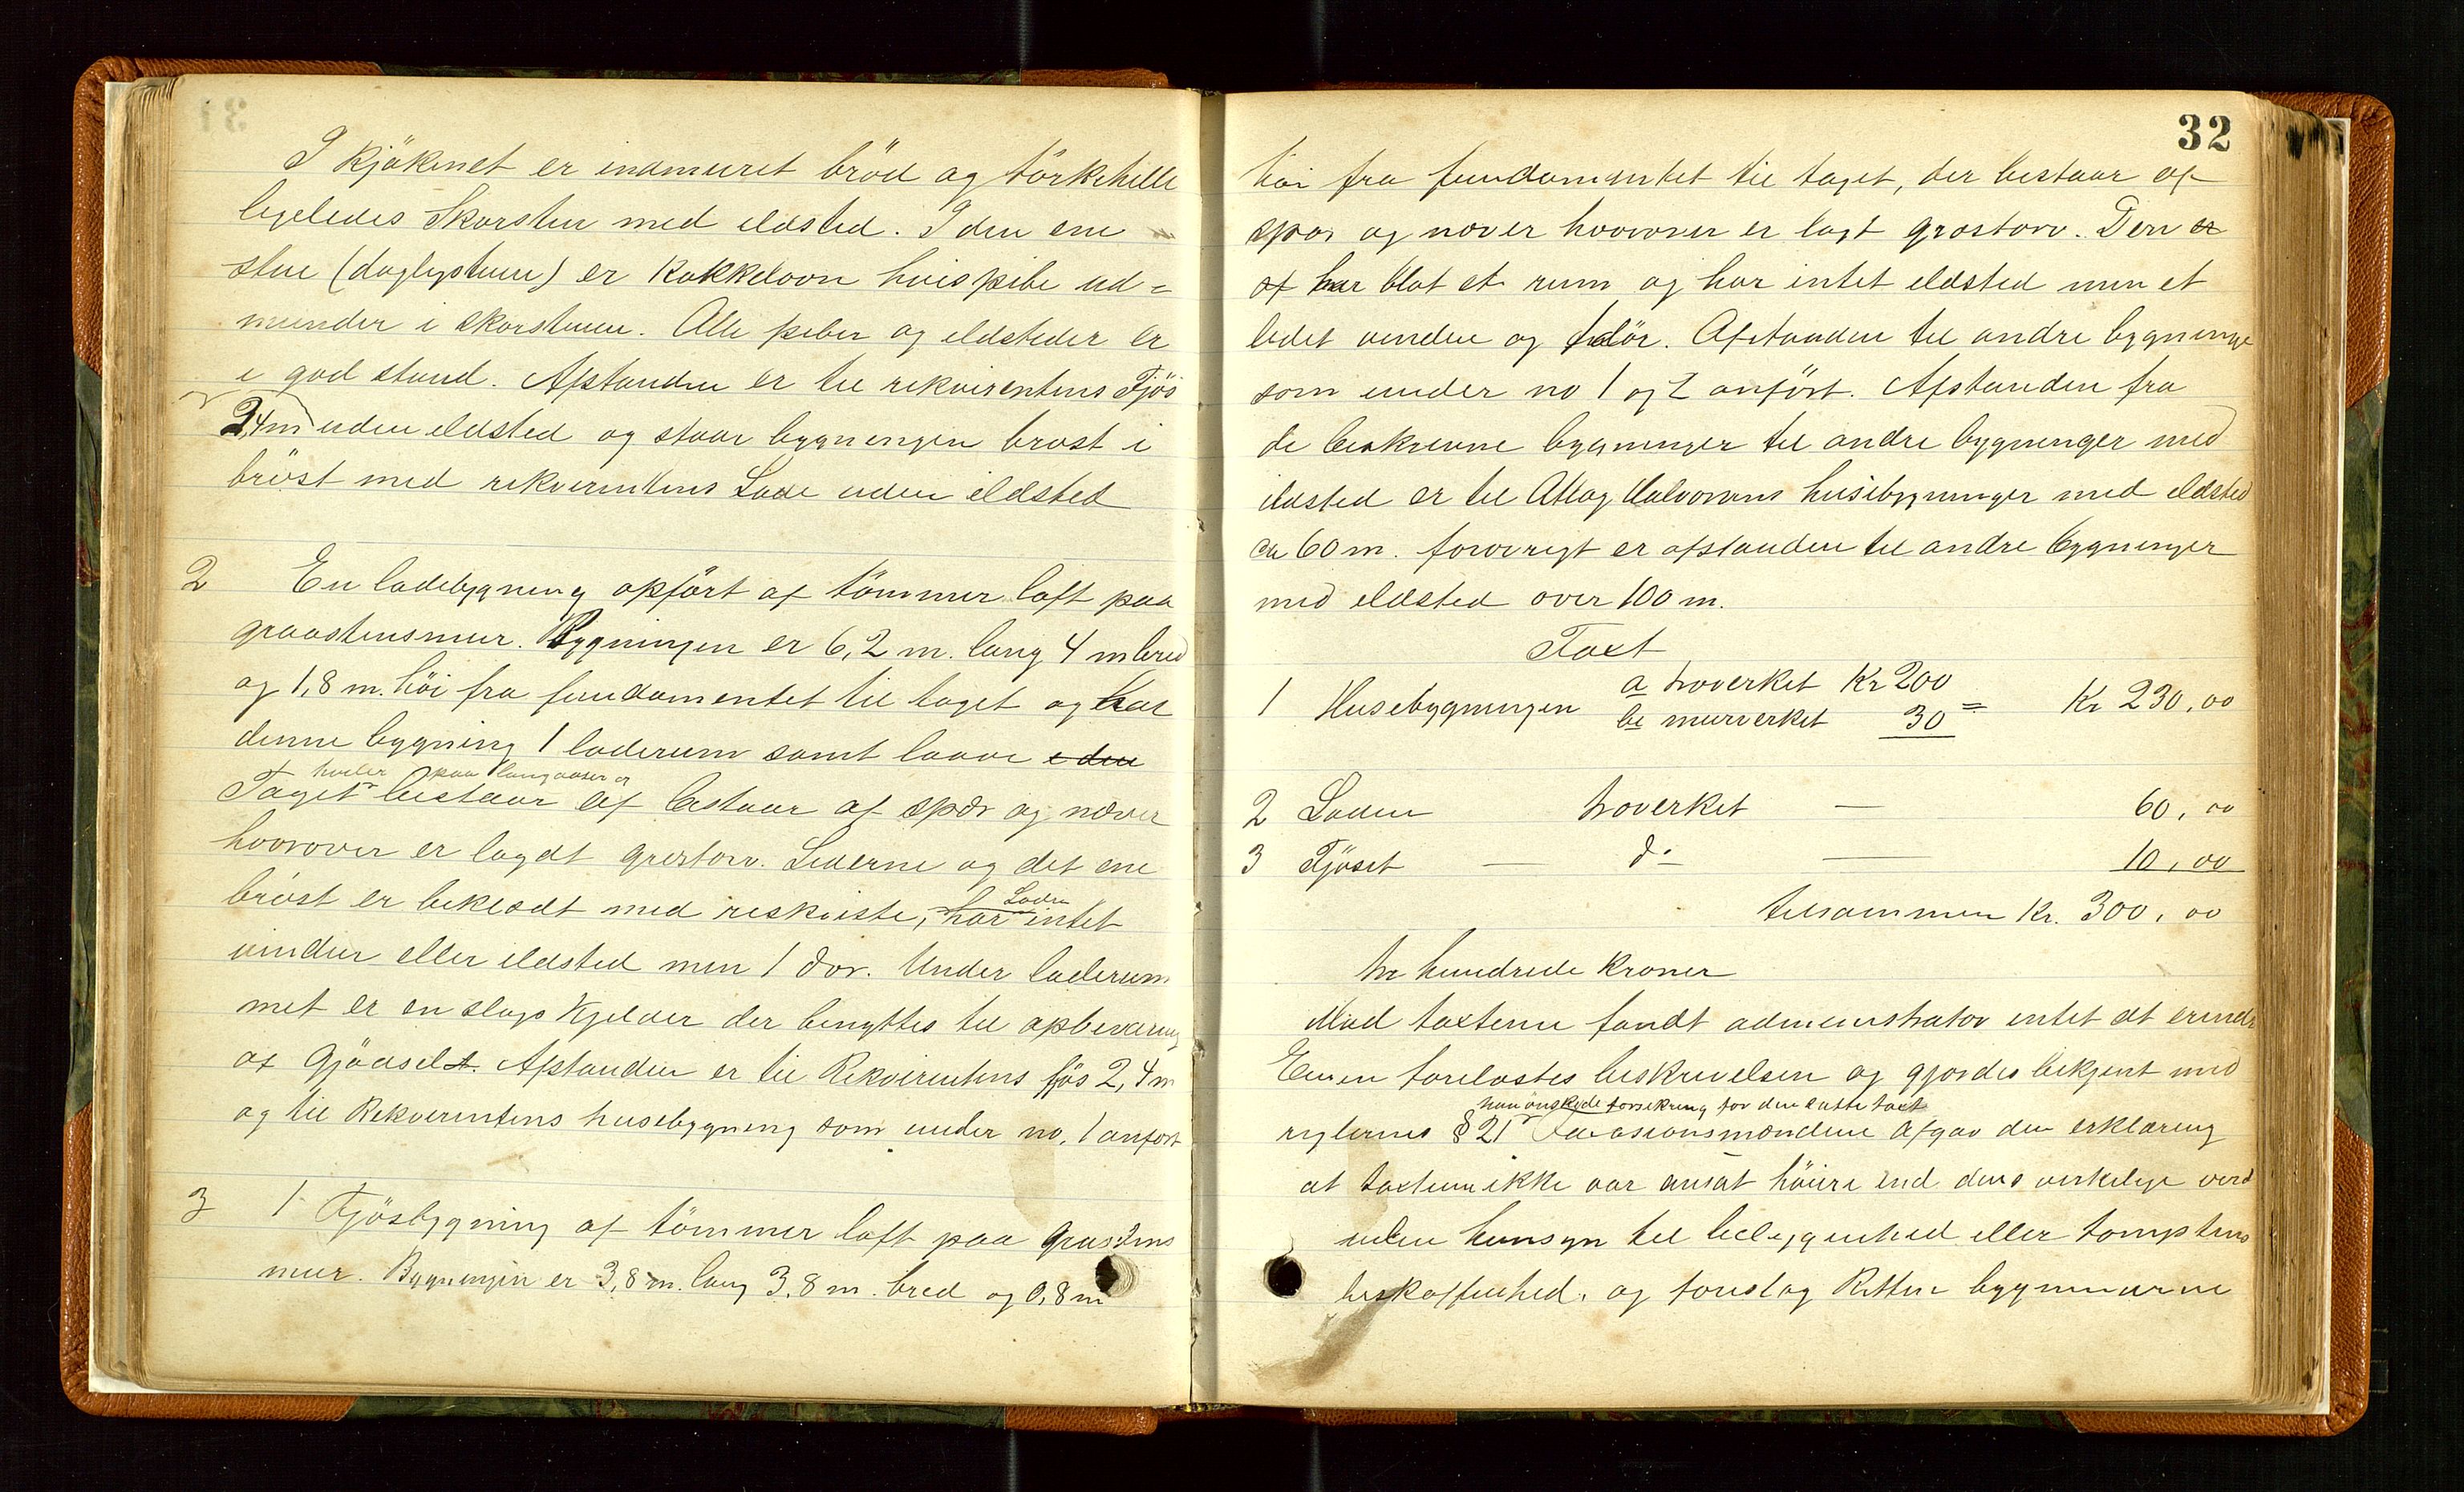 I kjökenet er indmuret bröd og törkehille
ligeledes Skorsten med ildsted. I den ene
stue (daglystuen) er Kakkelovn hvis pibe ud=
munder i skorstenen. Alle piber og ildsteder er
i god stand. Afstanden er til rekvirentens Fjös
2,4m uden ildsted og staar bygningen brøst i
bröst med rekvirentens Lade uden ildsted
2 En ladebygning opfört af tömmer laft paa
graastensmur. Bygningen er 6,2 m. lang 4 m bred
og 1,8 m. höi fra fundamentet til taget og har
denne bygning 1 laderum samt laave i den
hviler paa langaaser og
Taget bestaar af bestaar af spær og næver
hvorover er lagdt grøstorv. Siderne og det ene
bröst er beklædt med reskviste, har Laden intet
vindue eller ildsted men 1 dør. Under laderum
met er en slags Kjelder der benyttes til opbevaring
af Gjødselt. Afstanden er til Rekvirentens fjös 2,4 m
og til Rekvirentens husebygning som under no. 1 anfört
3 1 Fjösbygning af tömmer laft paa grastens
mur. Bygningen er 3,8 m. lang 3,8 m. bred og 0,8 m
32
höi fra fundamentet til taget, der bestaar af
spær og næver hvorover er lagt græstorv. Den er
af har blot et rum og har intet ildsted men et
lidet vindue og dör. Afstanden til andre bygninger
som under no 1 og 2 anført. Afstanden fra
de beskrevne bygninger til andre bygninger med
ildsted er til Halvorsens husebygninger med ildsted
ca 60 m. forøvrigt er afstanden til andre bygninger
med ildsted over 100 m.
Taxt
1 Husebygningen a træverket Kr 200
be murverket 30 = Kr 230,00
2 Laden træverket — 60,00
3 Fjöset — do — 10,00
tilsammen Kr. 300,00
tre hundrede Kroner
Mod taxterne fandt administrator intet at erindre
Eieren forelæstes beskrivelsen og gjordes bekjent med
han önskede forsikring for den satte taxt
reglernes § 21 Taxasionsmændene afgav den erklæring
at taxterne ikke var ansat höiere end dens verkelige værd
uden hensyn til beleggenhed eller tomptens
beskaffenhed. og foreslog Retten bygningerne